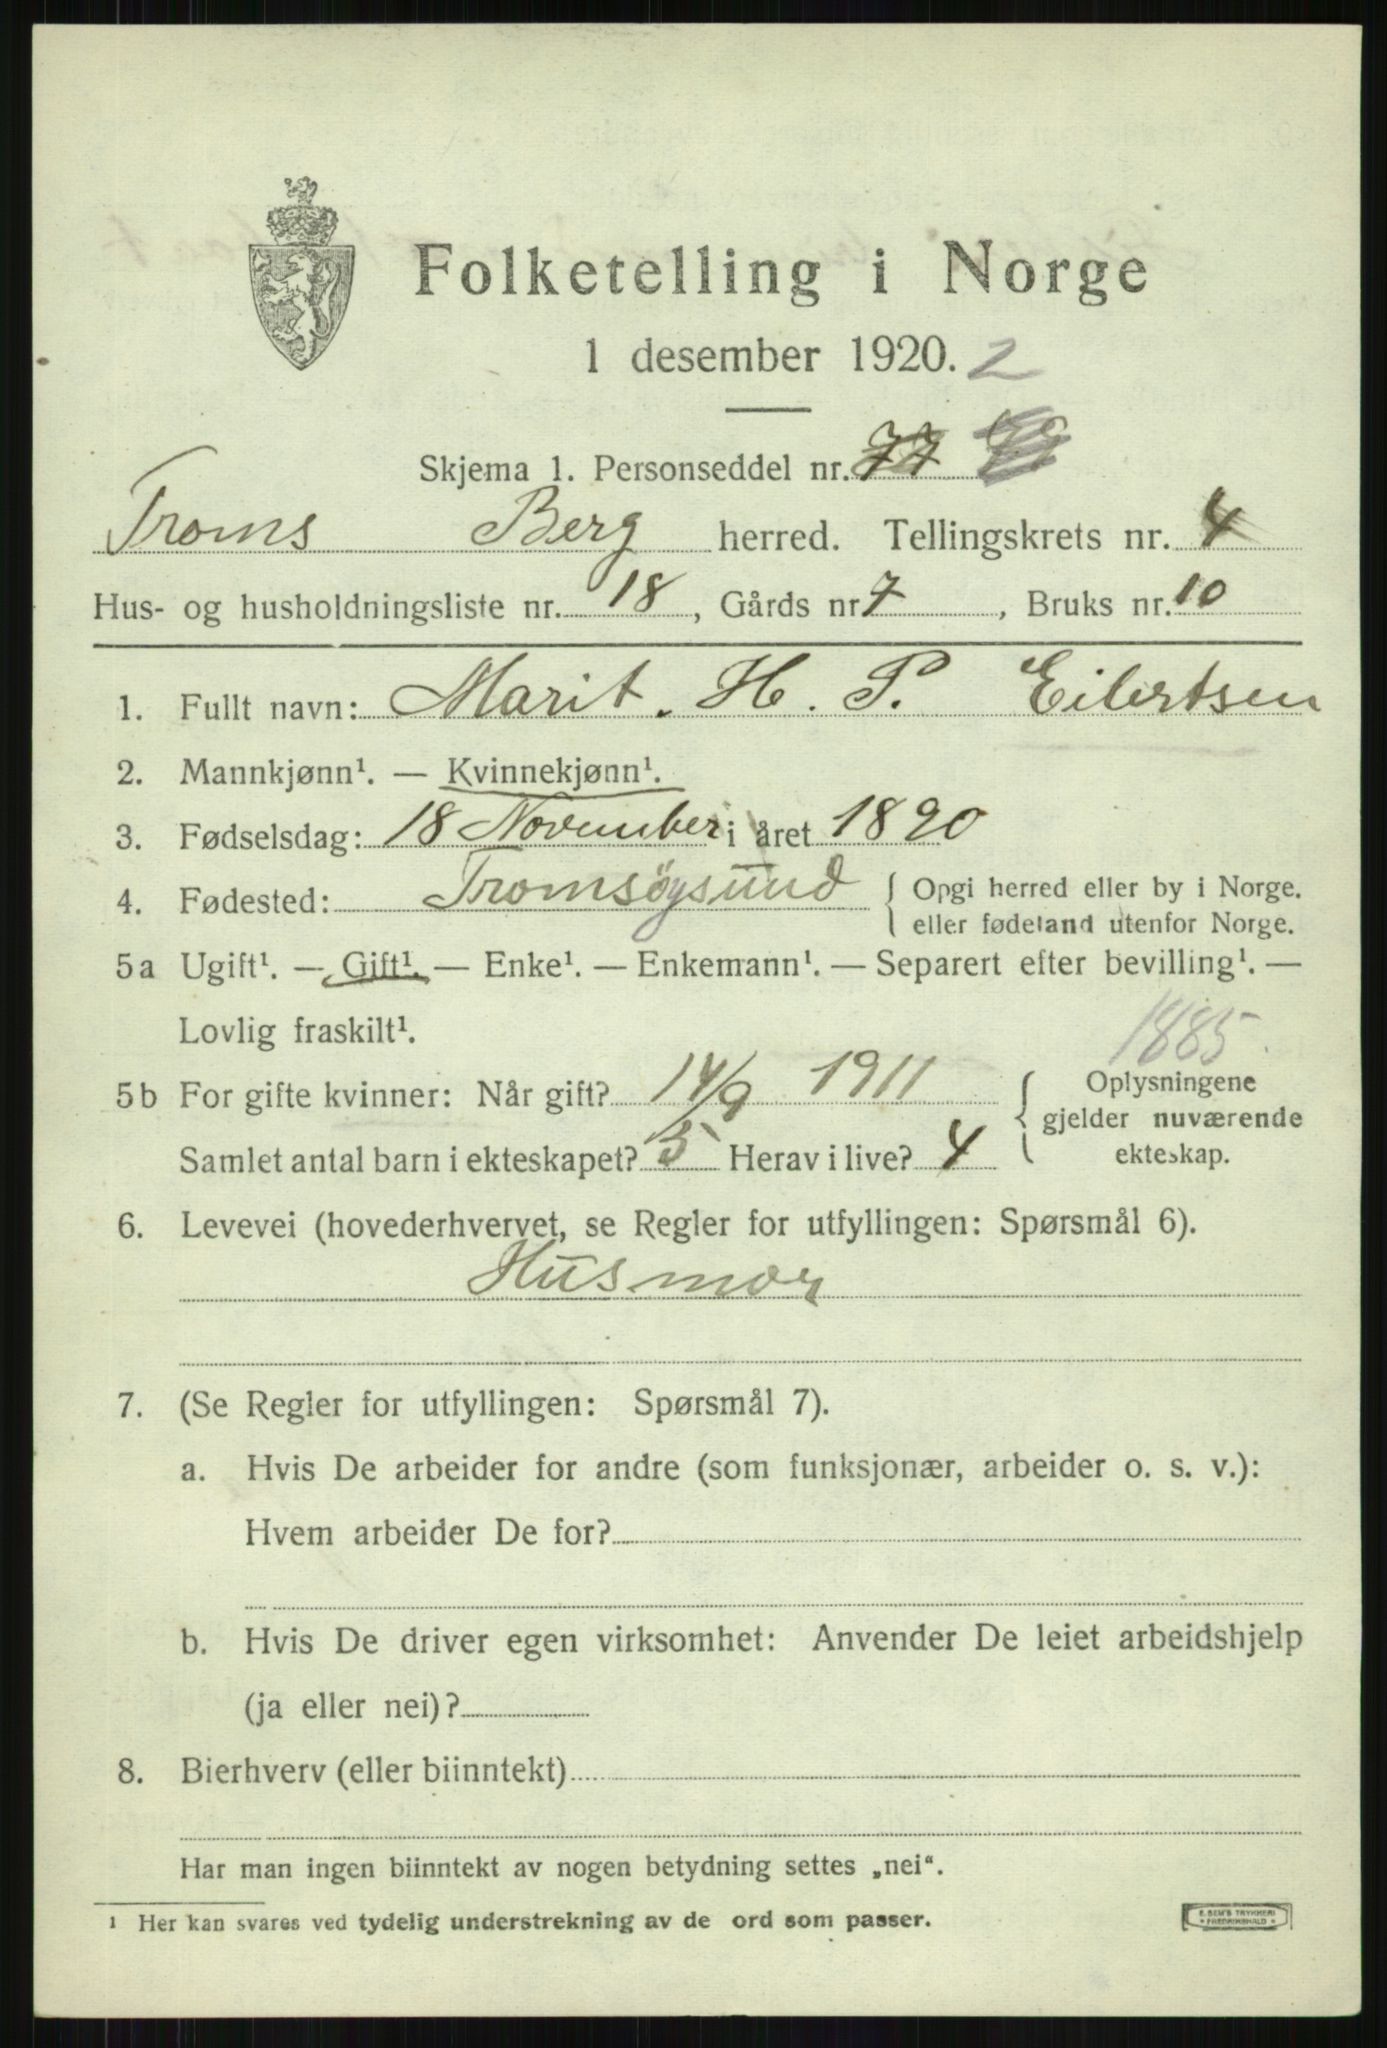 Folketelling i Norge
1 desember 1920. 2
Skjema 1. Personseddel nr. 77
Troms Berg herred. Tellingskrets nr. 4
Hus- og husholdningsliste nr. 18, Gårds nr 7, Bruks nr. 10
1. Fullt navn: Marit. H. P. Eilertsen
2. Mannkjønn¹. — Kvinnekjønn¹.
3. Fødselsdag: 18 November i året 1890
4. Fødested: Tromsøysund { Opgi herred eller by i Norge.
eller fødeland utenfor Norge.
5a Ugift¹. — Gift¹. — Enke¹. — Enkemann¹. — Separert efter bevilling¹. —
Lovlig fraskilt¹.
1885.
5b For gifte kvinner: Når gift? 14/9 1911 { Oplysningene
gjelder nuværende
ekteskap.
Samlet antal barn i ekteskapet? 5 Herav i live? 4
6. Levevei (hovederhvervet, se Regler for utfyllingen: Spørsmål 6).
Husmor
7. (Se Regler for utfyllingen: Spørsmål 7).
a. Hvis De arbeider for andre (som funksjonær, arbeider o. s. v.):
Hvem arbeider De for?
b. Hvis De driver egen virksomhet: Anvender De leiet arbeidshjelp
(ja eller nei)?
8. Bierhverv (eller biinntekt)
Har man ingen biinntekt av nogen betydning settes „nei“.
¹ Her kan svares ved tydelig understrekning av de ord som passer.
E. SEM'S TRYKKERI
FREDRIKSHALD